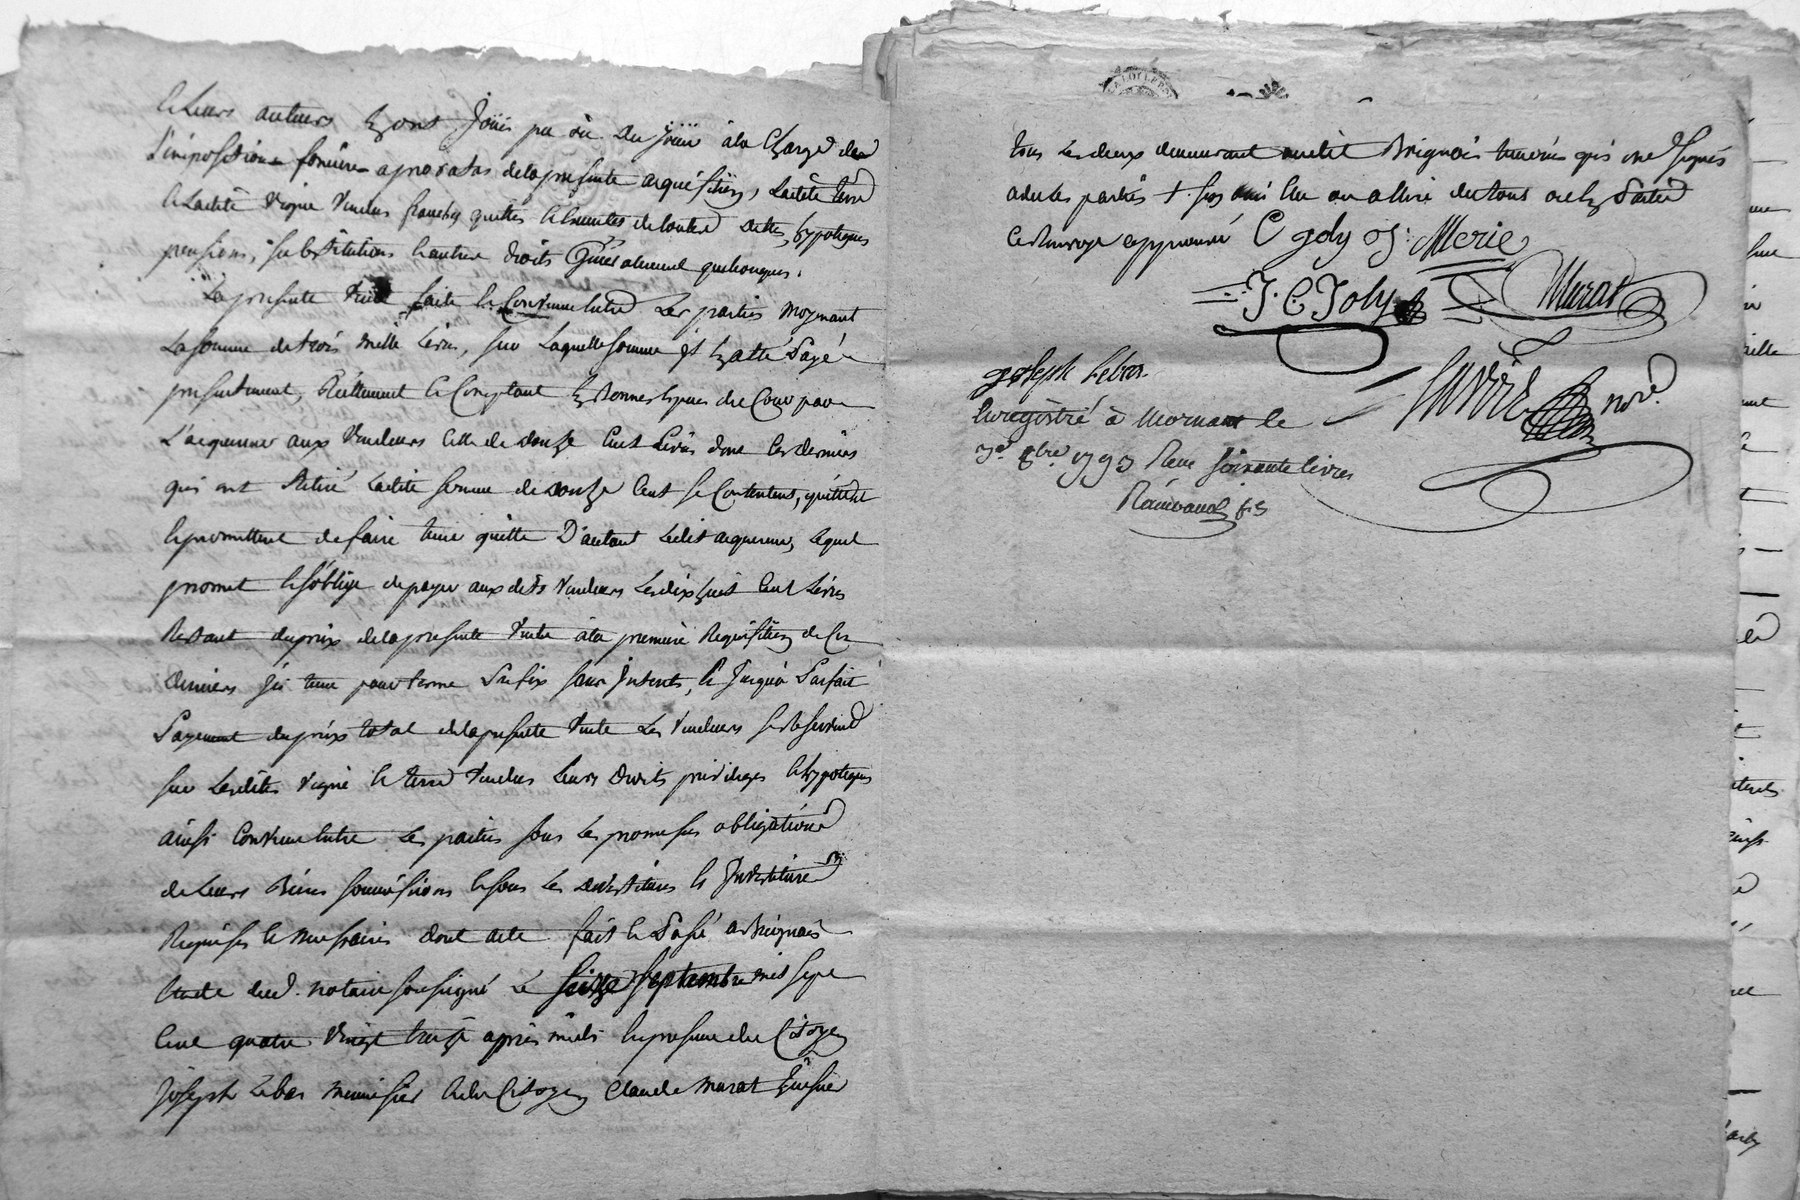 et leurs auteurs En ont Joui pu ou du jouir à la Charge de
l'imposition fonciere a prorata de la presente acquisition, Ladite terre
et Ladite Vigne Vendus francs quittes et Exemptes de toutes dettes, hypoteques
pensions, substitutions et autres droits Generalement quelconques.
La presente Vente faite et Convenue Entre Les parties moyenant
La Somme de trois mille Livres, sur Laquelle somme Jl En a Eté Payé
presentement, Réellement et Comptant En Bonnes Especes de Cours par
L'acquereur aux Vendeurs Celle de douze Cent Livres dont Ces derniers
qui ont Retiré Ladite somme de douze Cent se Contentent, quittent
et promettent de faire tenir quitte D'autant Ledit acquereur, Lequel
promet et s'oblige de payer aux dits Vendeurs Les dix huit Cent Livres
Restant du prix de la presente Vente à la premiere Requisition de Ces
derniers Jci tenu pour terme Prefix sans Jnterets, et Jusqu'à Parfait
Payement du prix total de la presente Vente Les Vendeurs se Reservent
sur Lesdites Vigne et terre Vendus Leurs droits privileges et hypoteques
ainsi Convenu Entre Les parties sous Les promesses obligations
de Leurs Biens soumissions et sous Les devestitures et Jnvestitures
Requises et necessaires dont acte fait et Passé a Brignais
Etude dud. notaire soussigné Le Seize Septembre mil sept
Cent quatre Vingt treize après midi En presence du Citoyen
Joseph Lebas menuisier et du Citoyen Claude Murat
tous Les deux demeurant audit Brignais temoins qui ont signés
avec les parties
Ce Renvoye approuvé C joly J. Merie
J. C Joly Murat
joseph Lebas
not.re
Enregistré à Mornant le
1793 Reçu soixante livres